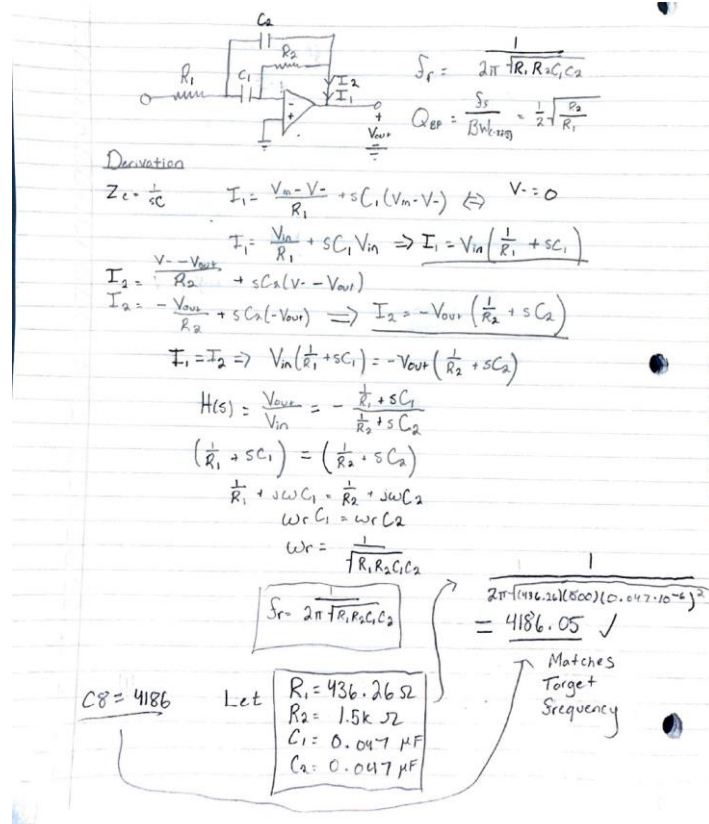 C₂
R₂
R₁
C₁
I₂
I₁
-
+
+
Vout
-
fr = 1 / 2π √R₁R₂C₁C₂
Q_BP = fs / BW(-3dB) = 1/2 √R₂/R₁
Derivation
Zc = 1/sC I₁ = Vin - V- / R₁ + sC₁(Vin - V-) ⇔ V- = 0
I₁ = Vin/R₁ + sC₁Vin ⇒ I₁ = Vin(1/R₁ + sC₁)
I₂ = V- - Vout / R₂ + sC₂(V- - Vout)
I₂ = - Vout/R₂ + sC₂(-Vout) ⇒ I₂ = -Vout(1/R₂ + sC₂)
I₁ = I₂ ⇒ Vin(1/R₁ + sC₁) = -Vout(1/R₂ + sC₂)
H(s) = Vout/Vin = - 1/R₁ + sC₁ / 1/R₂ + sC₂
(1/R₁ + sC₁) = (1/R₂ + sC₂)
1/R₁ + jωC₁ = 1/R₂ + jωC₂
ωrC₁ = ωrC₂
ωr = 1 / √R₁R₂C₁C₂
fr = 1 / 2π √R₁R₂C₁C₂
1 / 2π √(436.26)(1500)(0.047·10⁻⁶)²
= 4186.05 ✓
Matches
Target
frequency
C8 = 4186 Let
R₁ = 436.26 Ω
R₂ = 1.5k Ω
C₁ = 0.047 μF
C₂ = 0.047 μF